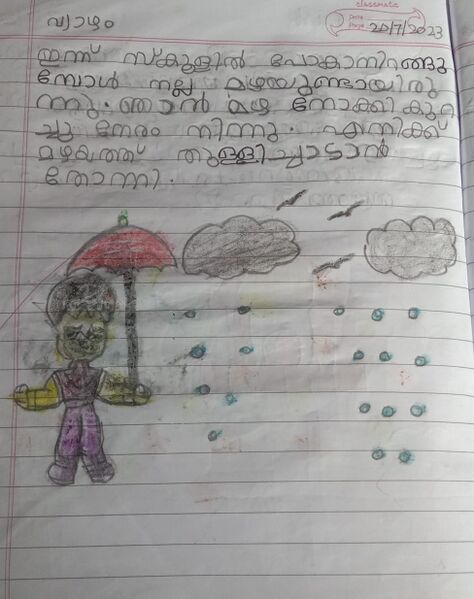 classmate
Date
Page
20/7/2023
വ്യാഴം
ഇന്ന് സ്കൂളിൽ പോകാനിറങ്ങു
മ്പോൾ നല്ല മഴയുണ്ടായിരു
ന്നു. ഞാൻ മഴ നോക്കി കുറ
ച്ചു നേരം നിന്നു. എനിക്ക്
മഴയത്ത് തുള്ളിച്ചാടാൻ
തോന്നി.